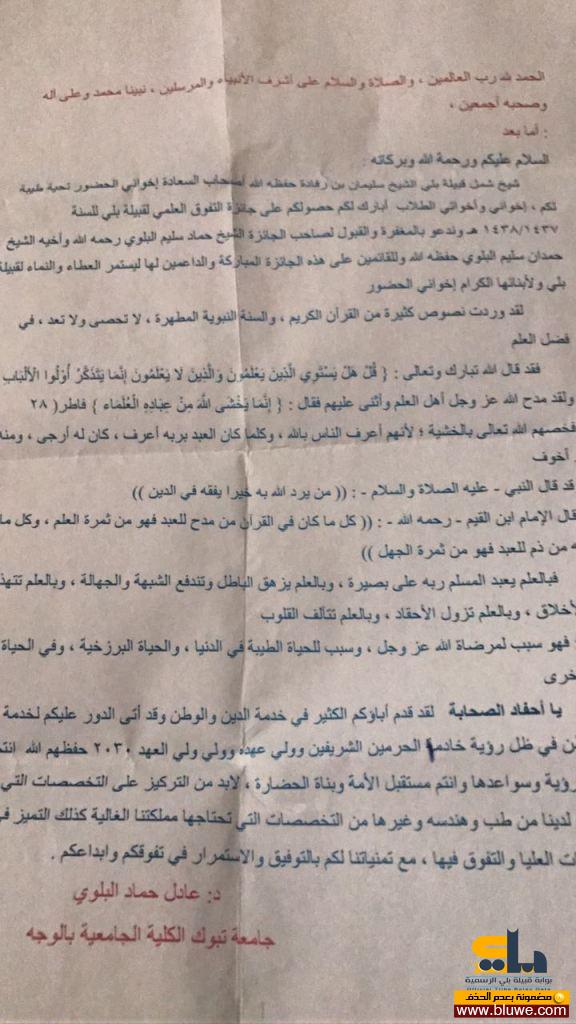 الحمد لله رب العالمين ، والصلاة والسلام على أشرف الأنبياء والمرسلين ، نبينا محمد وعلى آله
وصحبه أجمعين ،
: أما بعد
السلام عليكم ورحمة الله وبركاته :
شيخ شمل قبيلة بلي الشيخ سليمان بن رفادة حفظه الله أصحاب السعادة إخواني الحضور تحية طيبة
لكم ، إخواني وأخواتي الطلاب أبارك لكم حصولكم على جائزة التفوق العلمي لقبيلة بلي للسنة
١٤٣٨/١٤٣٧ هـ وندعو بالمغفرة والقبول لصاحب الجائزة الشيخ حماد سليم البلوي رحمه الله وأخيه الشيخ
حمدان سليم البلوي حفظه الله وللقائمين على هذه الجائزة المباركة والداعمين لها ليستمر العطاء والنماء لقبيلة
بلي ولأبنائها الكرام إخواني الحضور
لقد وردت نصوص كثيرة من القرآن الكريم ، والسنة النبوية المطهرة ، لا تحصى ولا تعد ، في
فضل العلم
فقد قال الله تبارك وتعالى : { قُلْ هَلْ يَسْتَوِي الَّذِينَ يَعْلَمُونَ وَالَّذِينَ لا يَعْلَمُونَ إِنَّمَا يَتَذَكَّرُ أُوْلُوا الْأَلْبَابِ
ولقد مدح الله عز وجل أهل العلم وأثنى عليهم فقال : { إِنَّمَا يَخْشَى اللَّهَ مِنْ عِبَادِهِ الْعُلَمَاء } فاطر( ٢٨
فخصهم الله تعالى بالخشية ؛ لأنهم أعرف الناس بالله ، وكلما كان العبد بربه أعرف ، كان له أرجى ، ومنه
أخوف
قد قال النبي - عليه الصلاة والسلام - : (( من يرد الله به خيرا يفقه في الدين ))
قال الإمام ابن القيم - رحمه الله - : (( كل ما كان في القرآن من مدح للعبد فهو من ثمرة العلم ، وكل ما
من ذم للعبد فهو من ثمرة الجهل ))
فبالعلم يعبد المسلم ربه على بصيرة ، وبالعلم يزهق الباطل وتندفع الشبهة والجهالة ، وبالعلم تتهذ
لأخلاق ، وبالعلم تزول الأحقاد ، وبالعلم تتآلف القلوب
فهو سبب لمرضاة الله عز وجل ، وسبب للحياة الطيبة في الدنيا ، والحياة البرزخية ، وفي الحياة
خرى
يا أحفاد الصحابة لقد قدم أباؤكم الكثير في خدمة الدين والوطن وقد أتى الدور عليكم لخدمة
في ظل رؤية خادم الحرمين الشريفين وولي عهده وولي ولي العهد ٢٠٣٠ حفظهم الله انتم
رؤية وسواعدها وانتم مستقبل الأمة وبناة الحضارة ، لابد من التركيز على التخصصات التي
لدينا من طب وهندسه وغيرها من التخصصات التي تحتاجها مملكتنا الغالية كذلك التميز في
ات العليا والتفوق فيها ، مع تمنياتنا لكم بالتوفيق والاستمرار في تفوقكم وابداعكم .
د: عادل حماد البلوي
جامعة تبوك الكلية الجامعية بالوجه
بلي
بوابة قبيلة بلي الرسمية
مضمونة بعدم الحذف
www.bluwe.com